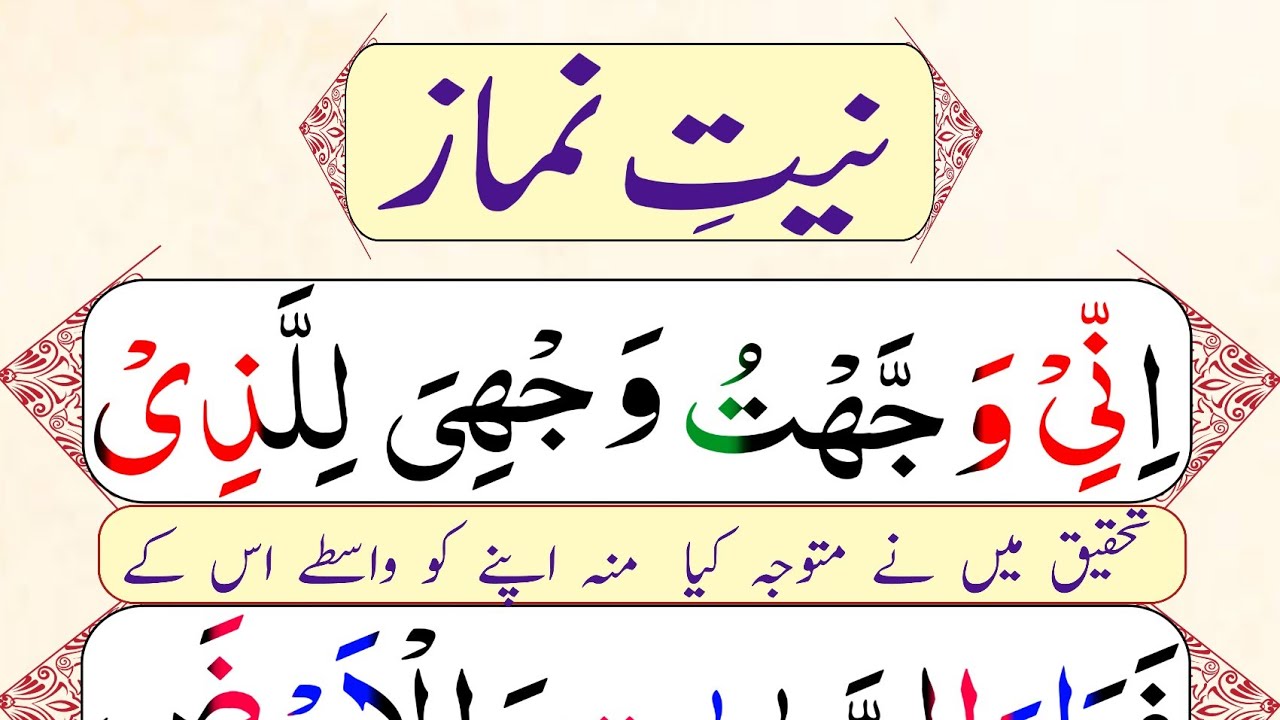 نیتِ نماز
اِنِّیْ وَجَّهْتُ وَجْهِیَ لِلَّذِیْ
تحقیق میں نے متوجہ کیا منہ اپنے کو واسطے اس کے